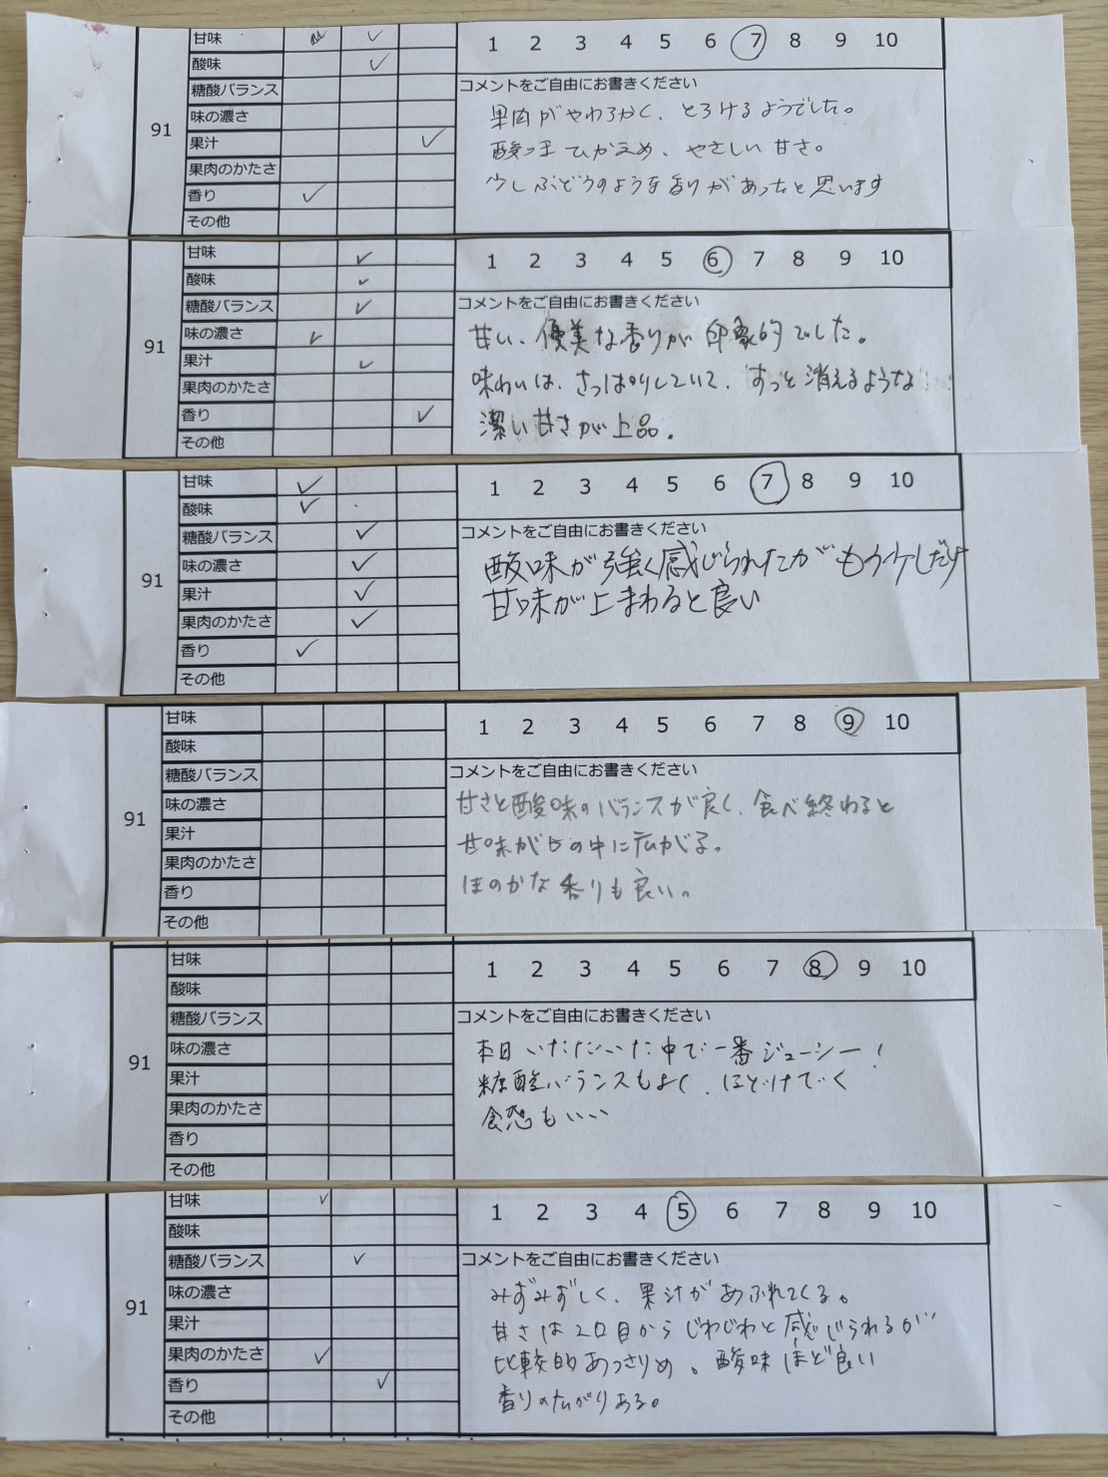 91
甘味
酸味
糖酸バランス
味の濃さ
果汁
果肉のかたさ
香り
その他
1 2 3 4 5 6 7 8 9 10
コメントをご自由にお書きください
果肉がやわらかく、とろけるようでした。
酸味ひかえめ、やさしい甘さ。
少しぶどうのような香りがあったと思います
91
甘味
酸味
糖酸バランス
味の濃さ
果汁
果肉のかたさ
香り
その他
1 2 3 4 5 6 7 8 9 10
コメントをご自由にお書きください
甘い、優美な香りが印象的でした。
味わいは、さっぱりしていて、すっと消えるような
潔い甘さが上品。
91
甘味
酸味
糖酸バランス
味の濃さ
果汁
果肉のかたさ
香り
その他
1 2 3 4 5 6 7 8 9 10
コメントをご自由にお書きください
酸味が強く感じられたがもう少しだけ
甘味が上まわると良い
91
甘味
酸味
糖酸バランス
味の濃さ
果汁
果肉のかたさ
香り
その他
1 2 3 4 5 6 7 8 9 10
コメントをご自由にお書きください
甘さと酸味のバランスが良く、食べ終わると
甘味が口の中に広がる。
ほのかな香りも良い。
91
甘味
酸味
糖酸バランス
味の濃さ
果汁
果肉のかたさ
香り
その他
1 2 3 4 5 6 7 8 9 10
コメントをご自由にお書きください
本日いただいた中で一番ジューシー!
糖酸バランスもよく、ほどけていく
食感もいい
91
甘味
酸味
糖酸バランス
味の濃さ
果汁
果肉のかたさ
香り
その他
1 2 3 4 5 6 7 8 9 10
コメントをご自由にお書きください
みずみずしく、果汁があふれてくる。
甘さは2口目からじわじわと感じられるが
比較的あっさりめ。酸味ほど良い
香りの広がりある。